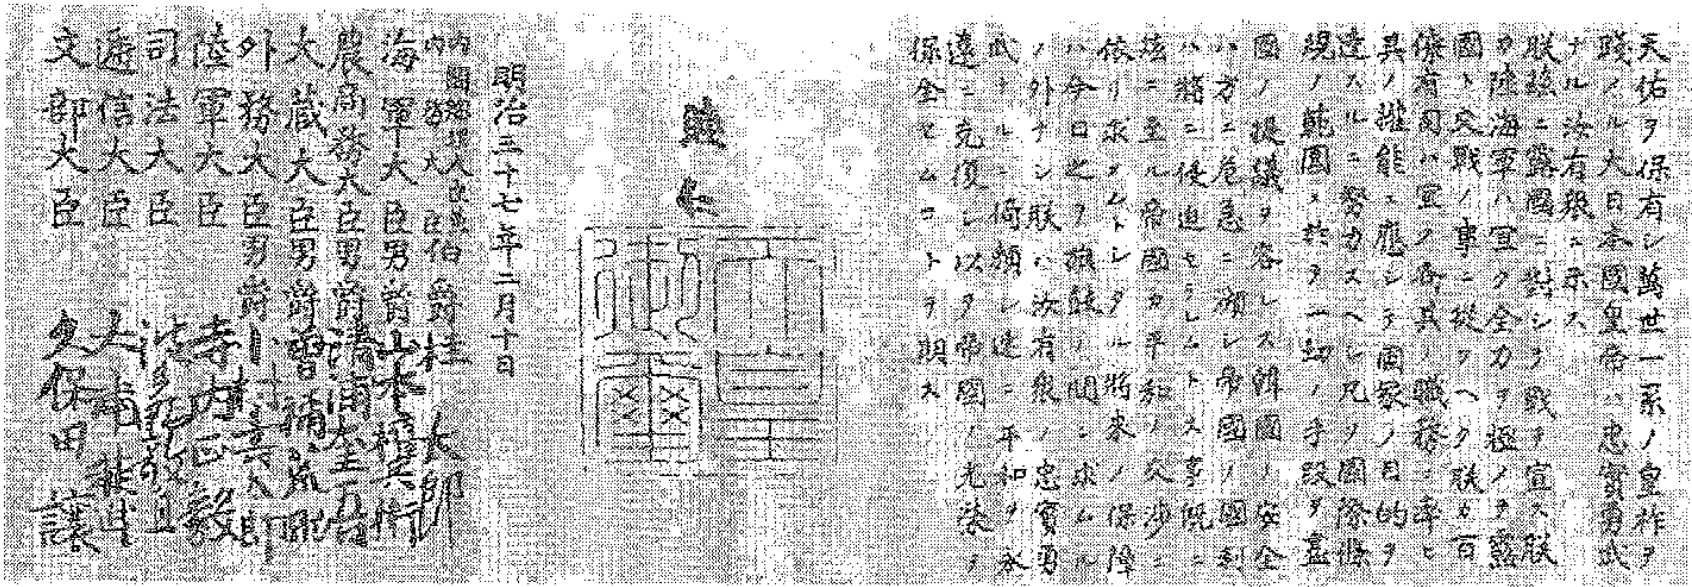 天佑ヲ保有シ萬世一系ノ皇祚ヲ
踐メル大日本國皇帝ハ忠實勇武
ナル汝有衆ニ示ス
朕茲ニ露國ニ對シテ戰ヲ宣ス朕
カ陸海軍ハ宜ク全力ヲ極メテ露
國ト交戰ノ事ニ從フヘク朕カ百
僚有司ハ宜ク各其ノ職務ニ率ヒ
其ノ權能ニ應シテ國家ノ目的ヲ
達スルニ努力スヘシ凡ソ國際條
規ノ範圍ニ於テ一切ノ手段ヲ盡
國ノ提議ヲ容レス韓國ノ安全
ハ方ニ危急ニ瀕シ帝國ノ國利
ハ將ニ侵迫セラレムトス事既ニ
茲ニ至ル帝國カ平和ノ交渉ニ
依リ求メムトシタル將來ノ保障
ハ今日之ヲ旗鼓ノ間ニ求ムル
ノ外ナシ朕ハ汝有衆ノ忠實勇
武ナルニ倚頼シ速ニ平和ヲ永
遠ニ克復シ以テ帝國ノ光榮ヲ
保全セムコトヲ期ス
睦仁
天皇
御璽
明治三十七年二月十日
内閣總理大臣兼
内務大臣伯爵桂太郎
海軍大臣男爵山本權兵衛
農商務大臣男爵清浦奎吾
大蔵大臣男爵曾禰荒助
外務大臣男爵小村壽太郎
陸軍大臣寺内正毅
司法大臣波多野敬直
遞信大臣大浦兼武
文部大臣久保田讓